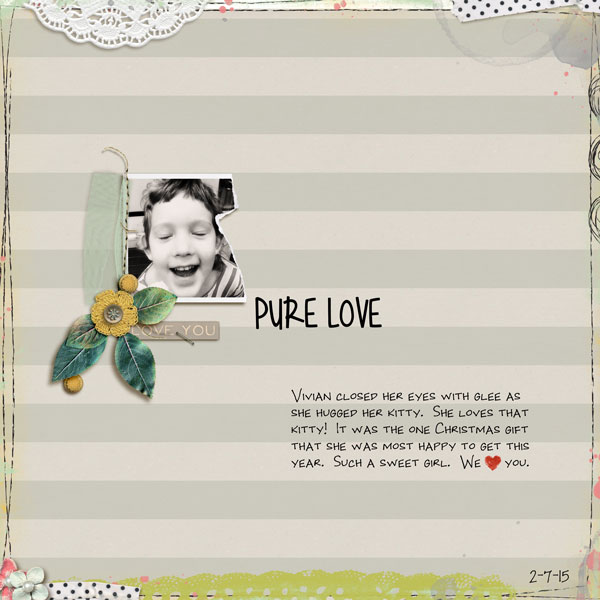 LOVE YOU
PURE LOVE
VIVIAN CLOSED HER EYES WITH GLEE AS
SHE HUGGED HER KITTY. SHE LOVES THAT
KITTY! IT WAS THE ONE CHRISTMAS GIFT
THAT SHE WAS MOST HAPPY TO GET THIS
YEAR. SUCH A SWEET GIRL. WE ❤ YOU.
2-7-15